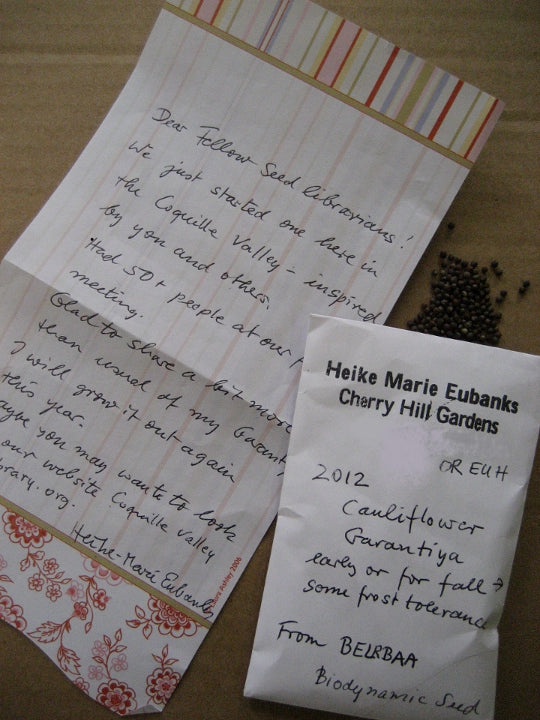 Dear Fellow Seed librarians!
We just started one here in
the Coquille Valley - inspired
by you and others.
Had 50+ people at our
meeting.
Glad to share a bit more
than usual of my Garanti
I will grow it out again
this year.
aybe you may wante to look
our website Coquille Valley
brary.org.
Heike-Marie Eubanks
Ashley 2006
Heike Marie Eubanks
Cherry Hill Gardens
OR EUH
2012
Cauliflower
Garantiya
early or for fall →
some frost tolerance
From BELRBAA
Biodynamic Seed